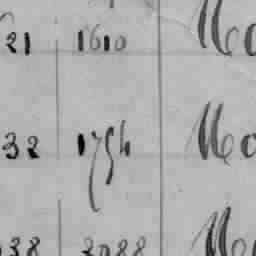 21 1610 Mo
32 1754 Mo
38 2088 Mo